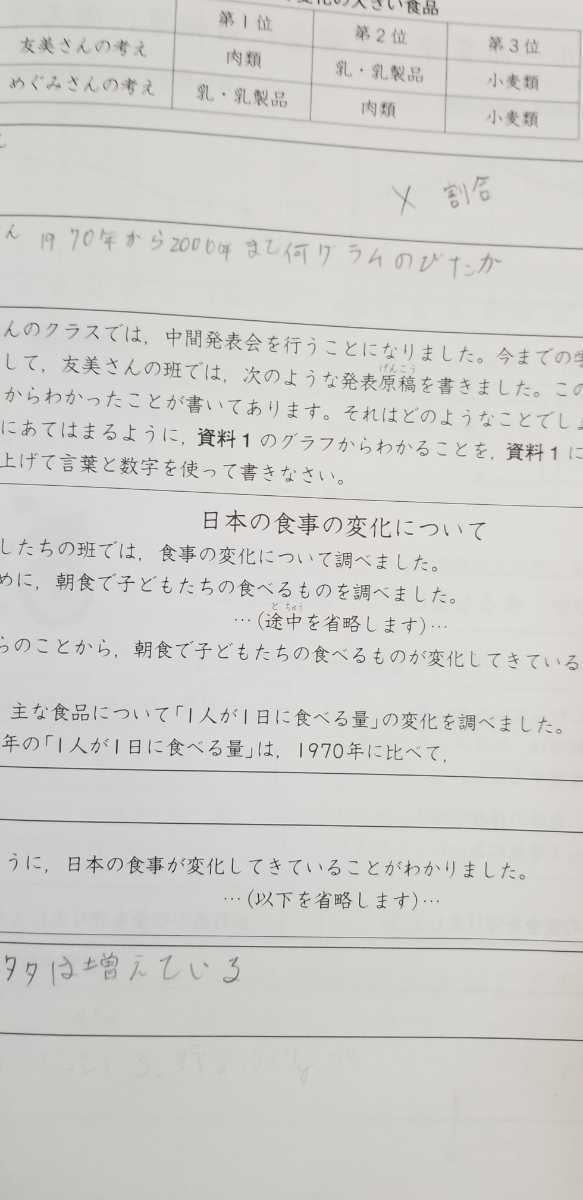 変化の大きい食品
第1位 第2位 第3位
友美さんの考え 肉類 乳・乳製品 小麦類
めぐみさんの考え 乳・乳製品 肉類 小麦類
× 割合
ん 1970年から2000年まで何グラムのびたか
んのクラスでは,中間発表会を行うことになりました。今までの学
して,友美さんの班では,次のような発表原稿を書きました。この
げんこう
からわかったことが書いてあります。それはどのようなことでしょ
にあてはまるように,資料1のグラフからわかることを,資料1に
上げて言葉と数字を使って書きなさい。
日本の食事の変化について
したちの班では,食事の変化について調べました。
めに,朝食で子どもたちの食べるものを調べました。
…(途中を省略します)…
とちゅう
らのことから,朝食で子どもたちの食べるものが変化してきている
主な食品について「1人が1日に食べる量」の変化を調べました。
年の「1人が1日に食べる量」は,1970年に比べて,
うに,日本の食事が変化してきていることがわかりました。
…(以下を省略します)…
は増えている